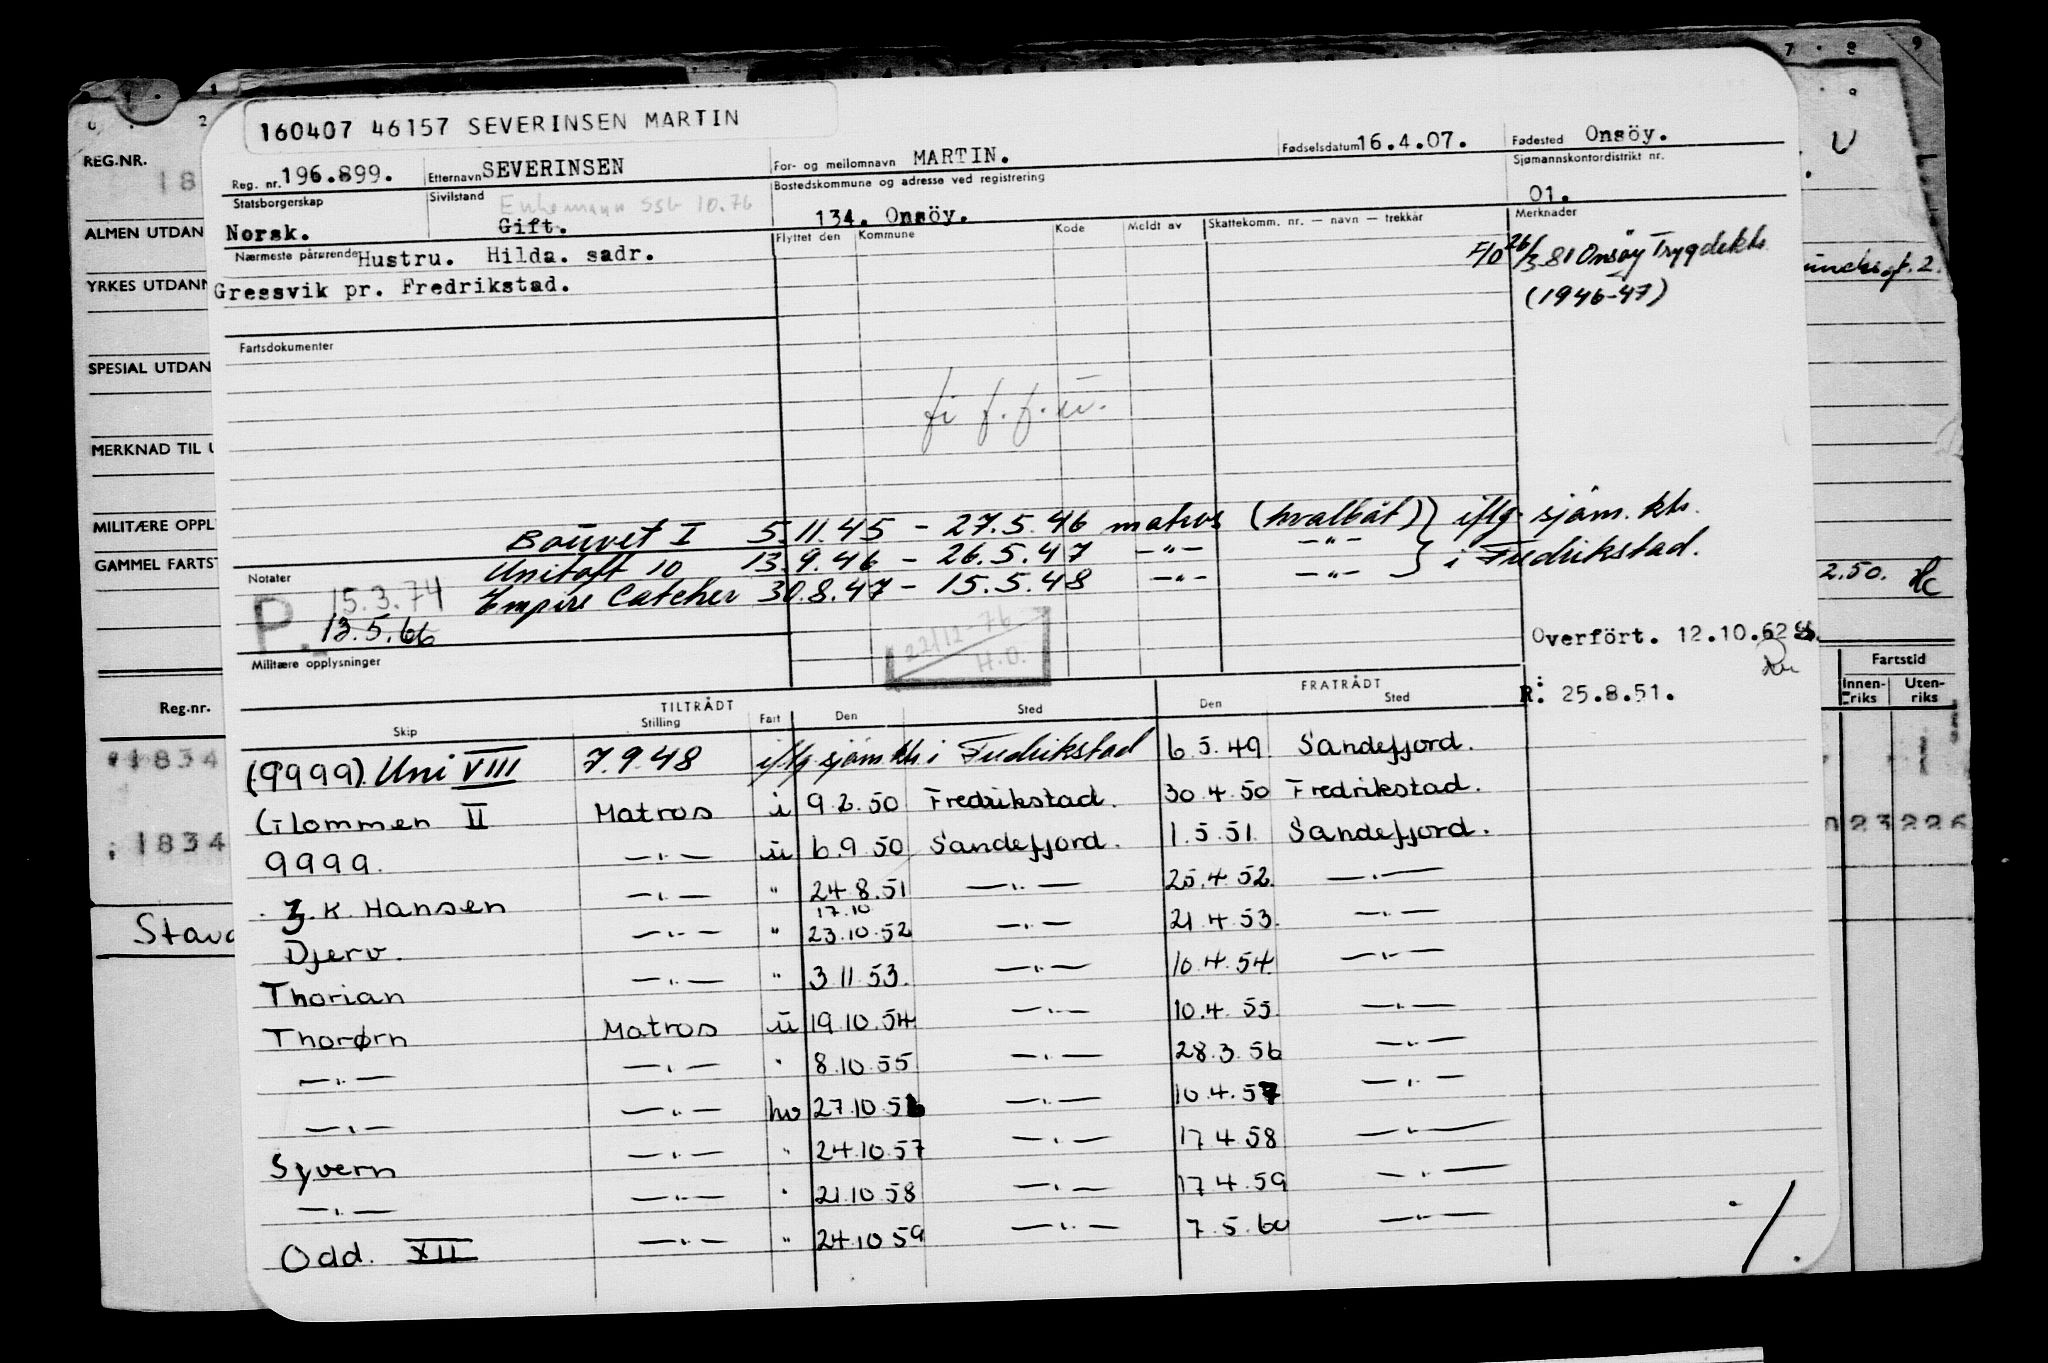 160407 46157 SEVERINSEN MARTIN
Reg. nr. 196.899. Etternavn SEVERINSEN For- og mellomnavn MARTIN. Fødselsdatum 16.4.07. Fødested Onsöy.
Statsborgerskap Norsk. Sivilstand Gift. Enkemann SSB 10.76 Bostedskommune og adresse ved registrering 134. Onsöy. Sjømannskontordistrikt nr. 01.
Nærmeste pårørende Hustru. Hilda. sadr. Flyttet den Kommune Kode Meldt av Skattekomm. nr. — navn — trekkår Merknader
Gressvik pr. Fredrikstad.
F/O 26/3 81 Onsöy Trygdekt.
(1946-47)
Fartsdokumenter
Bouvet I 5.11.45 - 27.5.46 matros (hvalbåt) iflg. sjöm.kt.
Unitaft 10 13.9.46 - 26.5.47 -"- -"- i Fredrikstad.
Empire Catcher 30.8.47 - 15.5.48 -"- -"-
Notater
P. 15.3.74
13.5.66
22/12-76
H.O.
Overfört. 12.10.62
Militære opplysninger
R: 25.8.51.
TILTRÅDT FRATRÅDT
Skip Stilling Fart Den Sted Den Sted
(9999) Uni VIII 7.9.48 iflg sjöm.kt. i Fredrikstad 6.5.49 Sandefjord.
Glommen II Matros i 9.2.50 Fredrikstad. 30.4.50 Fredrikstad.
9999. —"— ū 6.9.50 Sandefjord. 1.5.51. Sandefjord.
J.K. Hansen —"— " 24.8.51 —"— 25.4.52. —"—
17.10
Djerv. —"— " 23.10.52 —"— 21.4.53. —"—
Thorian —"— " 3.11.53. —"— 10.4.54. —"—
Thorørn Matros ū 19.10.54 —"— 10.4.55. —"—
—"— —"— " 8.10.55 —"— 28.3.56 —"—
—"— —"— hv 27.10.56 —"— 10.4.57 —"—
Syvern —"— " 24.10.57 —"— 17.4.58 —"—
—"— —"— " 21.10.58 —"— 17.4.59 —"—
Odd. XII —"— " 24.10.59 —"— 7.5.60 —"—
REG.NR.
18
ALMEN UTDAN
YRKES UTDANN
SPESIAL UTDAN
MERKNAD TIL U
MILITÆRE OPPL
GAMMEL FARTS
Reg.nr.
1834
1834
Stava
2.50.
Fartstid
Innen-riks Uten-riks
023 226